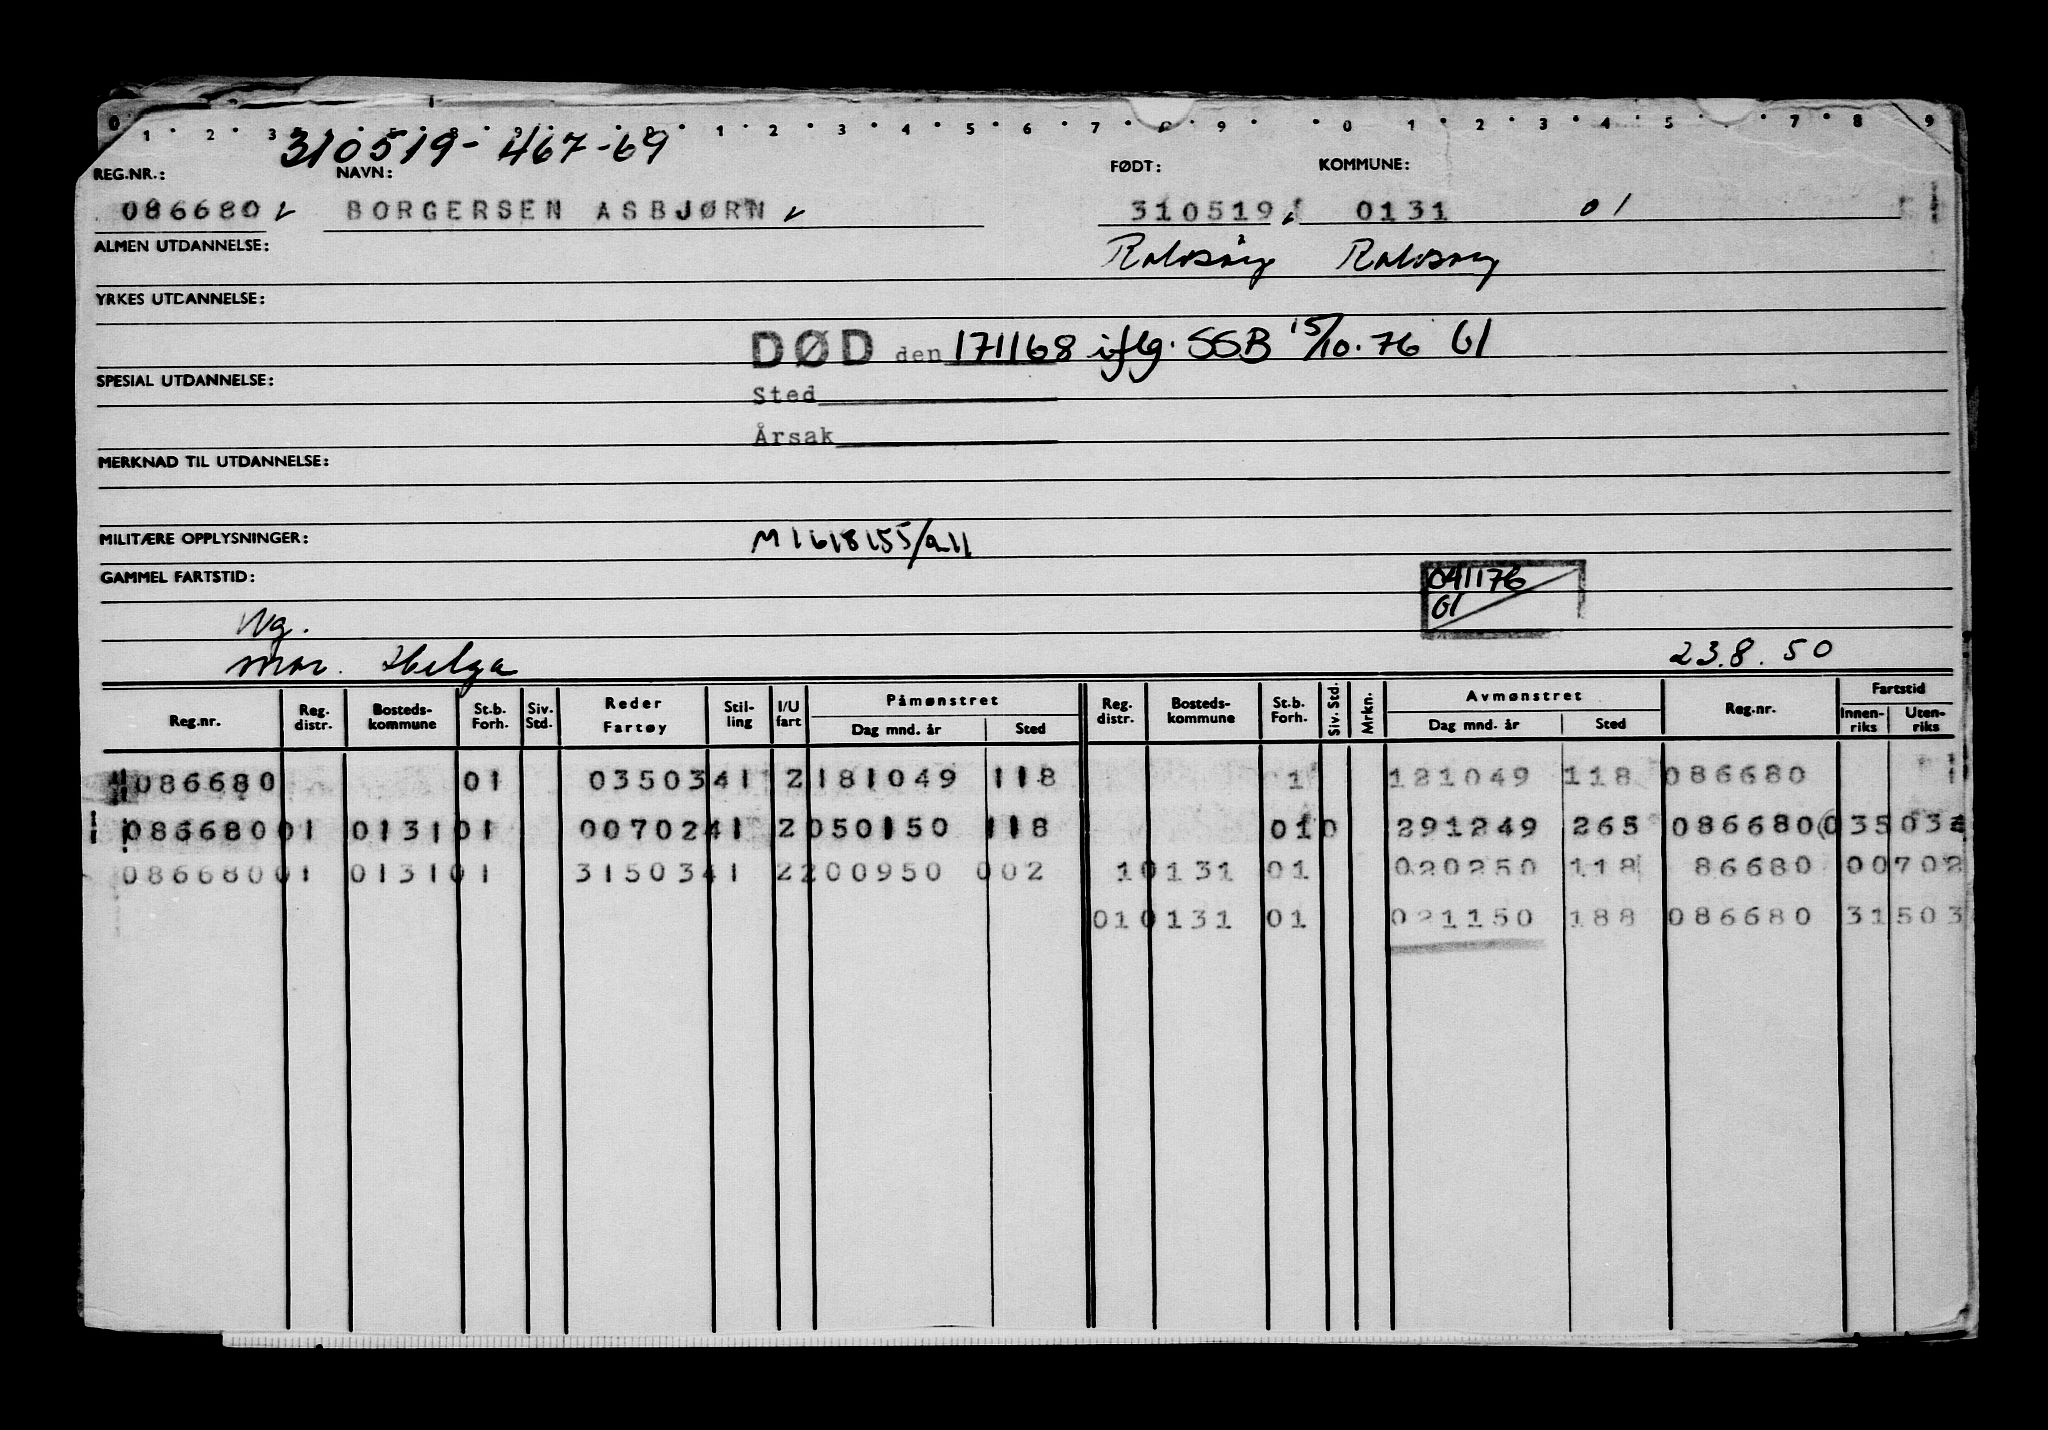 0 1 2 3 1 2 3 4 5 6 7 8 9 0 1 2 3 4 5 7 8 9
310519-467-69
REG.NR.: NAVN: FØDT: KOMMUNE:
086680 BORGERSEN ASBJØRN 310519 0131 01
ALMEN UTDANNELSE: Rolvsøy Rolvsøy
YRKES UTDANNELSE:
DØD den 171168 iflg. SSB 15/10.76 Gl
SPESIAL UTDANNELSE:
Sted
Årsak
MERKNAD TIL UTDANNELSE:
MILITÆRE OPPLYSNINGER: M1618155/a11
GAMMEL FARTSTID: 041176
Gl
Ug.
mor. Helga 23.8.50
Reg.nr. Reg. distr. Bosteds-kommune St.b. Forh. Siv. Std. Reder Fartøy Stil-ling I/U fart Påmønstret Dag mnd. år Sted Reg. distr. Bosteds-kommune St.b. Forh. Siv. Std. Mrkn. Avmønstret Dag mnd. år Sted Reg.nr. Fartstid Innen-riks Uten-riks
086680 01 03503 41 2 181049 118 1 121049 118 086680
086680 01 0131 01 00702 41 2 050150 118 01 0 291249 265 086680 03503
086680 01 0131 01 31503 41 2 200950 002 1 0131 01 020250 118 86680 00702
01 0131 01 021150 188 086680 31503